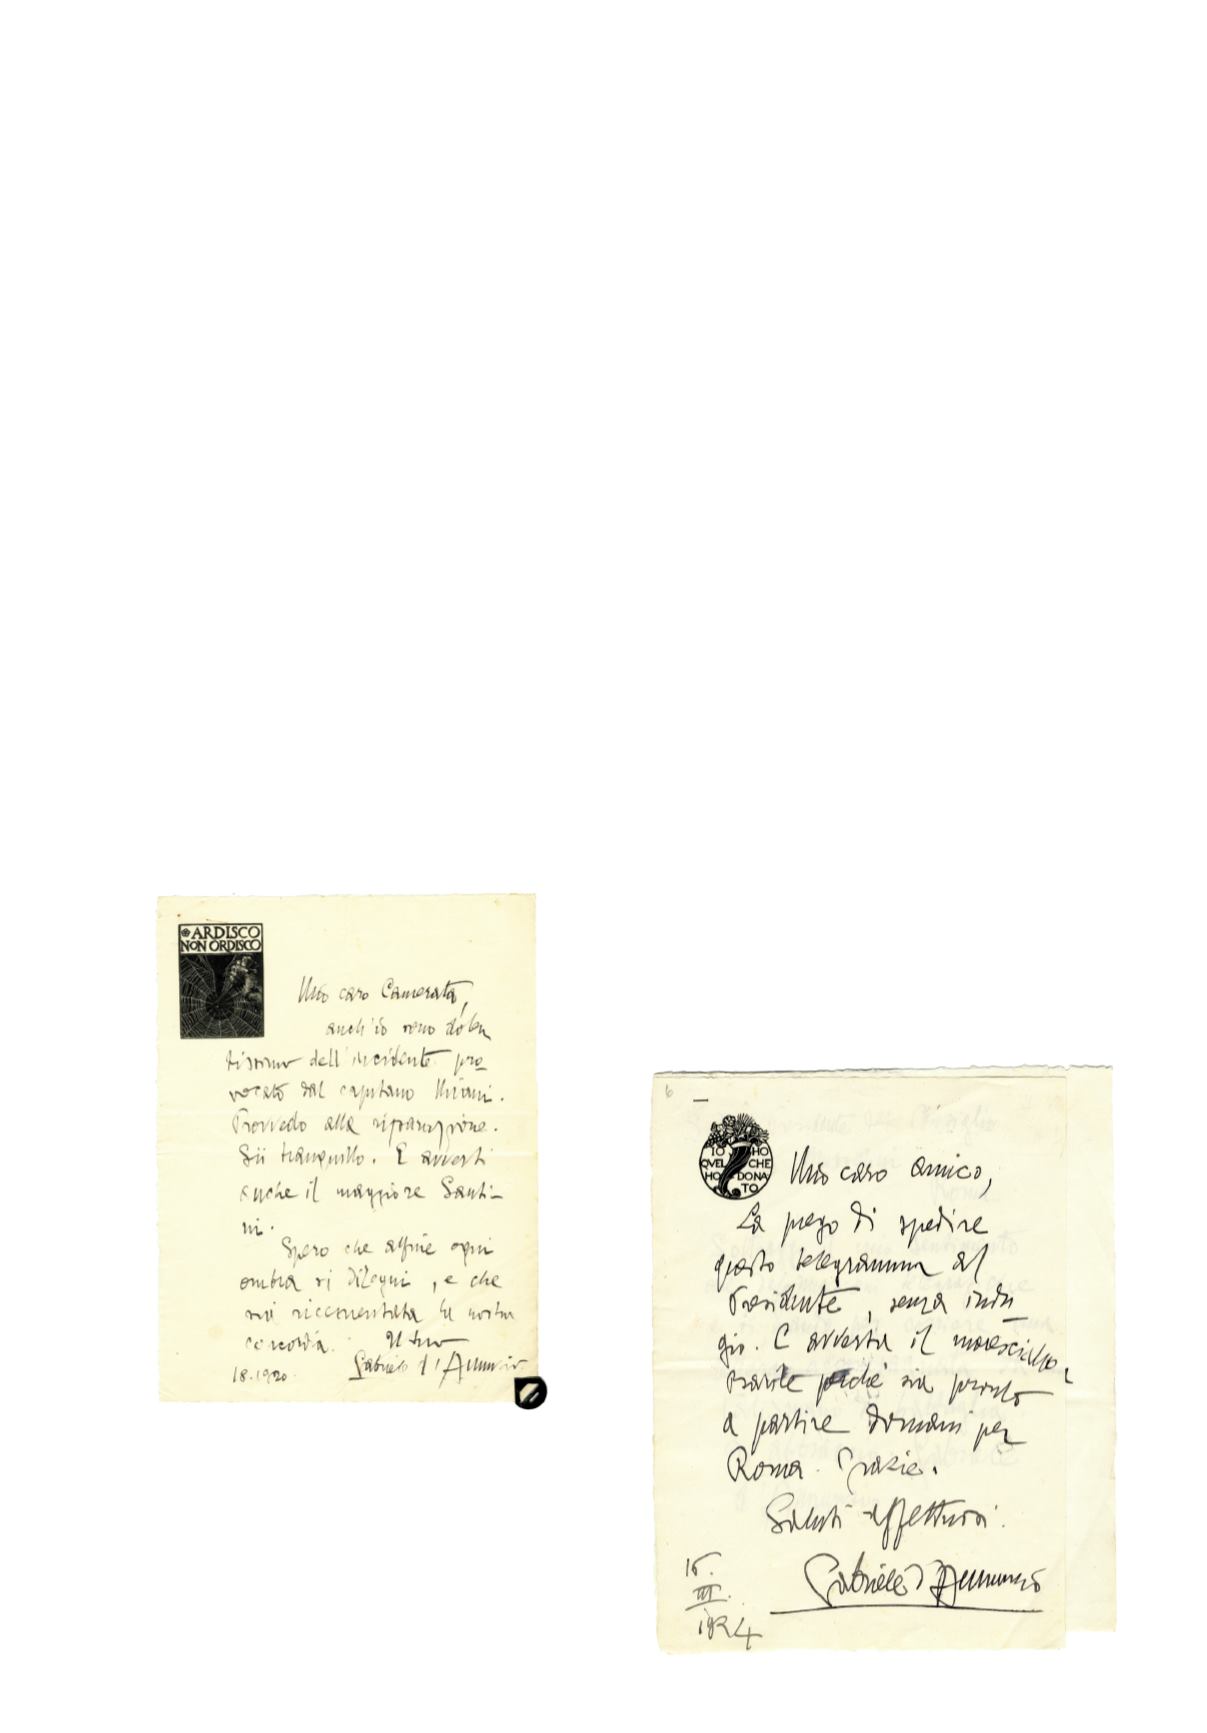 ARDISCO
NON ORDISCO
Mio caro Camerata,
anch'io sono dolen
tissimo dell'incidente pro
vocato dal capitano
Provvedo alla riparazione.
Sii tranquillo. E avverti
anche il maggiore Santi-
ni.
Spero che alfine ogni
ombra si dilegui, e che
sia ricementata la nostra
concordia. Il tuo
Gabriele d'Annunzio
1920
6
IO HO
QVEL CHE
HO DONA
TO
Mio caro amico,
La prego di spedire
questo telegramma al
Presidente, senza indu
gio. E avverta il maresciallo
perché sia pronto
a partire domani per
Roma. Grazie.
Saluti affettuosi.
Gabriele d'Annunzio
III.
1924